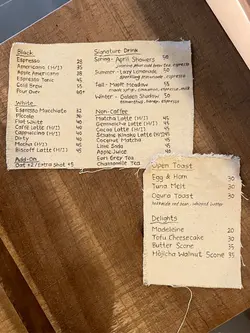 Black
Espresso 25
Americano (H/I) 35
Apple Americano 38
Espresso Tonic 45
Cold Brew 55
Pour Over 60+
White
Espresso Macchiato 32
Piccolo 36
Flat White 40
Café Latte (H/I) 40
Cappuccino (H/I) 40
Dirty 40
Mocha (H/I) 45
Biscoff Latte (H/I) 45
Add-On
Oat +7 / Extra Shot +5
Signature Drink
Spring - April Showers 50
Summer - Lazy Lemonade
sparkling lemonade, espresso
Fall - Misty Meadow 55
Winter - Golden Shadow 50
Non-Coffee
Matcha Latte (H/I) 45
Genmaicha Latte (H/I) 45
Cocoa Latte (H/I)
Sesame Kinako Latte
Coconut Matcha
Lime Soda
Apple Juice
Earl Grey Tea
Chamomile Tea
Open Toast
Egg & Ham 30
Tuna Melt 30
Ogura Toast 30
Hokkaido red bean, whipped butter
Delights
Madeleine 20
Tofu Cheesecake 30
Butter Scone 35
Hōjicha Walnut Scone 35